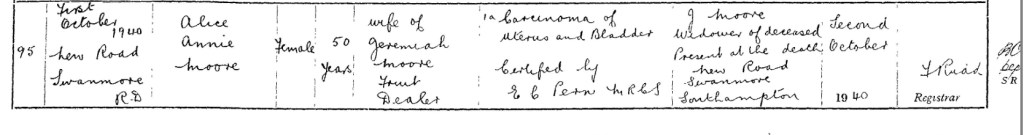 95
First
October
1940
New Road
Swanmore
R.D
Alice
Annie
Moore
Female
50
Years
wife of
Jeremiah
Moore
Fruit
Dealer
1a Carcinoma of
Uterus and Bladder
Certified by
E C Pern MRCS
J Moore
Widower of deceased
Present at the death
New Road
Swanmore
Southampton
Second
October
1940
Registrar
SR